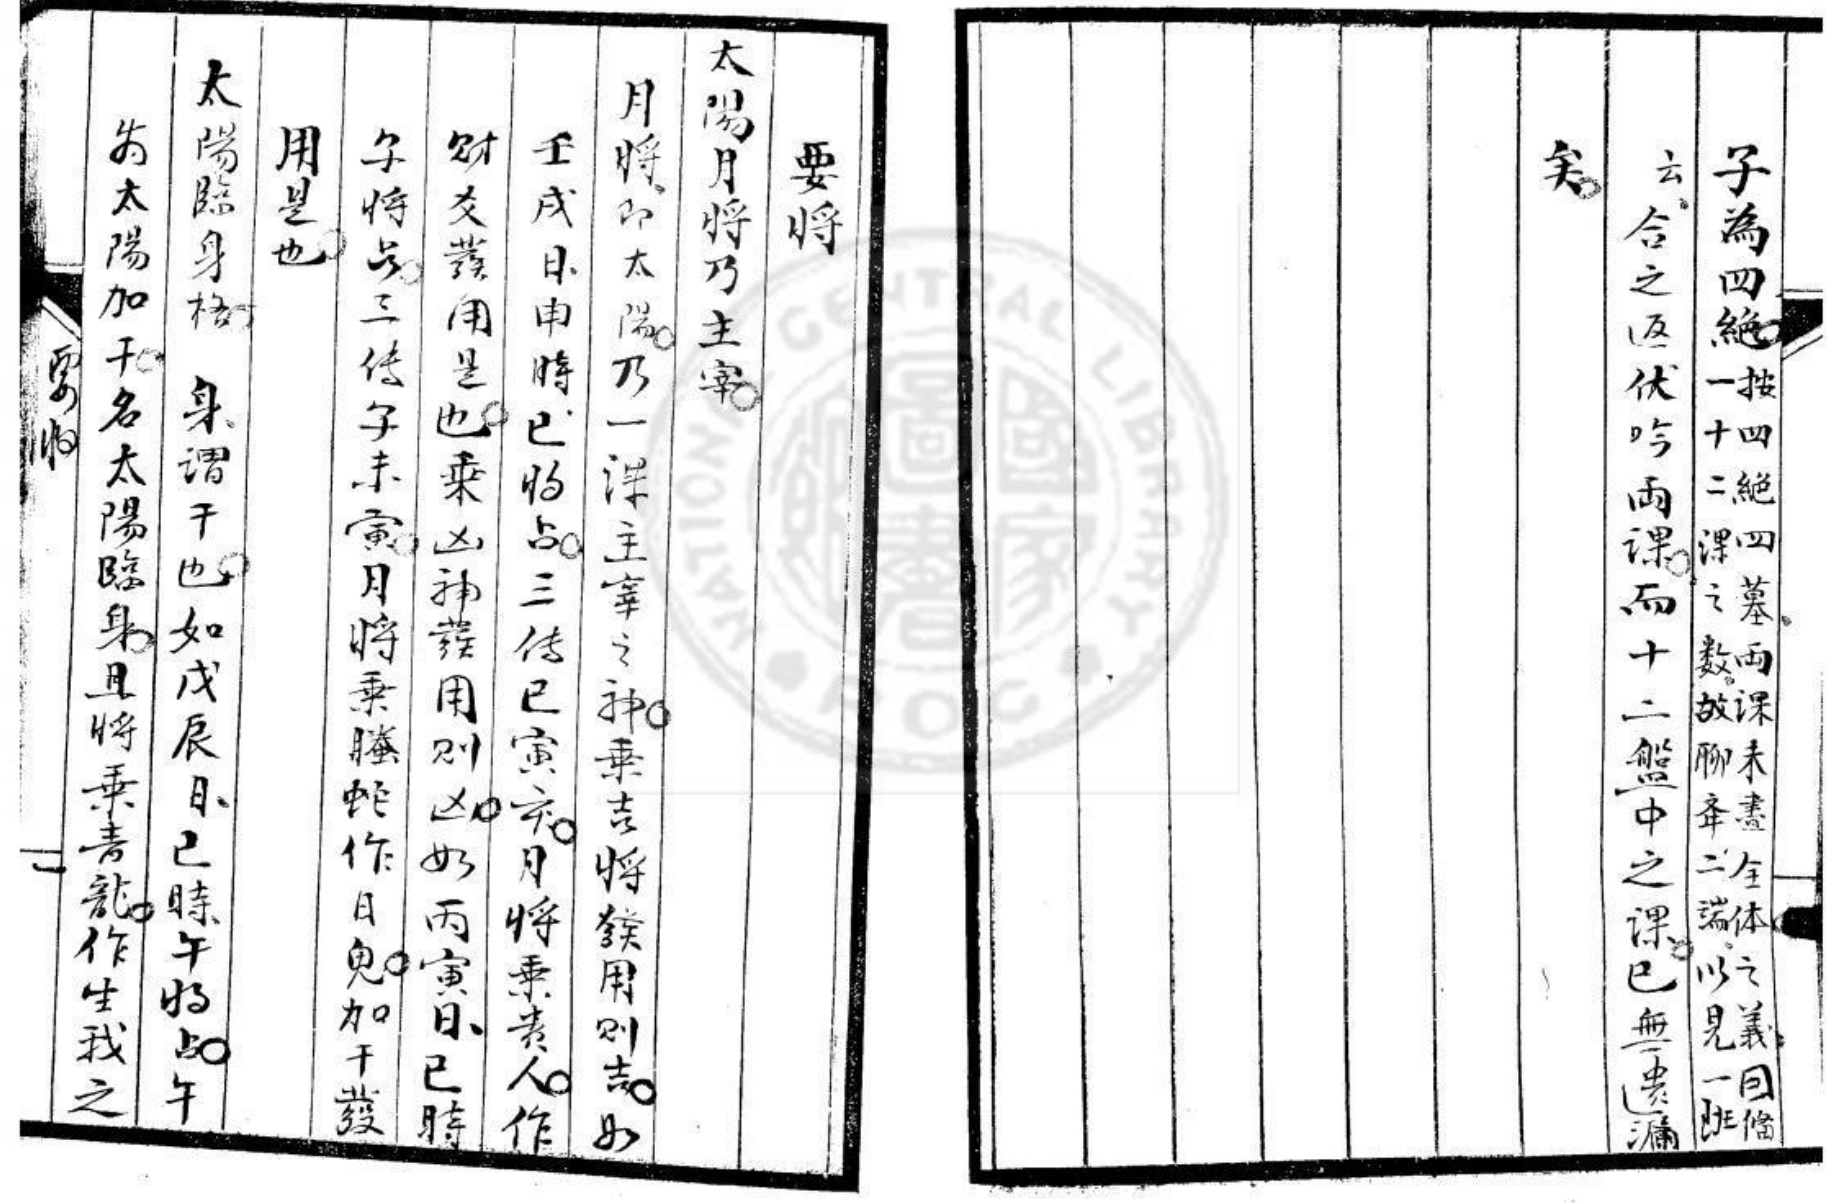 子為四絶
按四絶四墓両課未盡全体之義因偹
一十二課之数故聊舉二端以見一班
云合之返伏吟兩課而十二盤中之課已無遺漏
矣
要將
太陽月將乃主宰
月將即太陽乃一課主宰之神乗吉將發用則吉如
壬戌日申時巳將占三傳巳寅亥月將乗貴人作
財爻發用是也乗凶神發用則凶如丙寅日巳時
子將占三傳子未寅月將乗螣蛇作日鬼加干發
用是也
太陽臨身格 身謂干也如戊辰日巳時午將占午
為太陽加干名太陽臨身且將乗青龍作生我之
要將
NATIONAL CENTRAL LIBRARY
ROC
國家圖書館